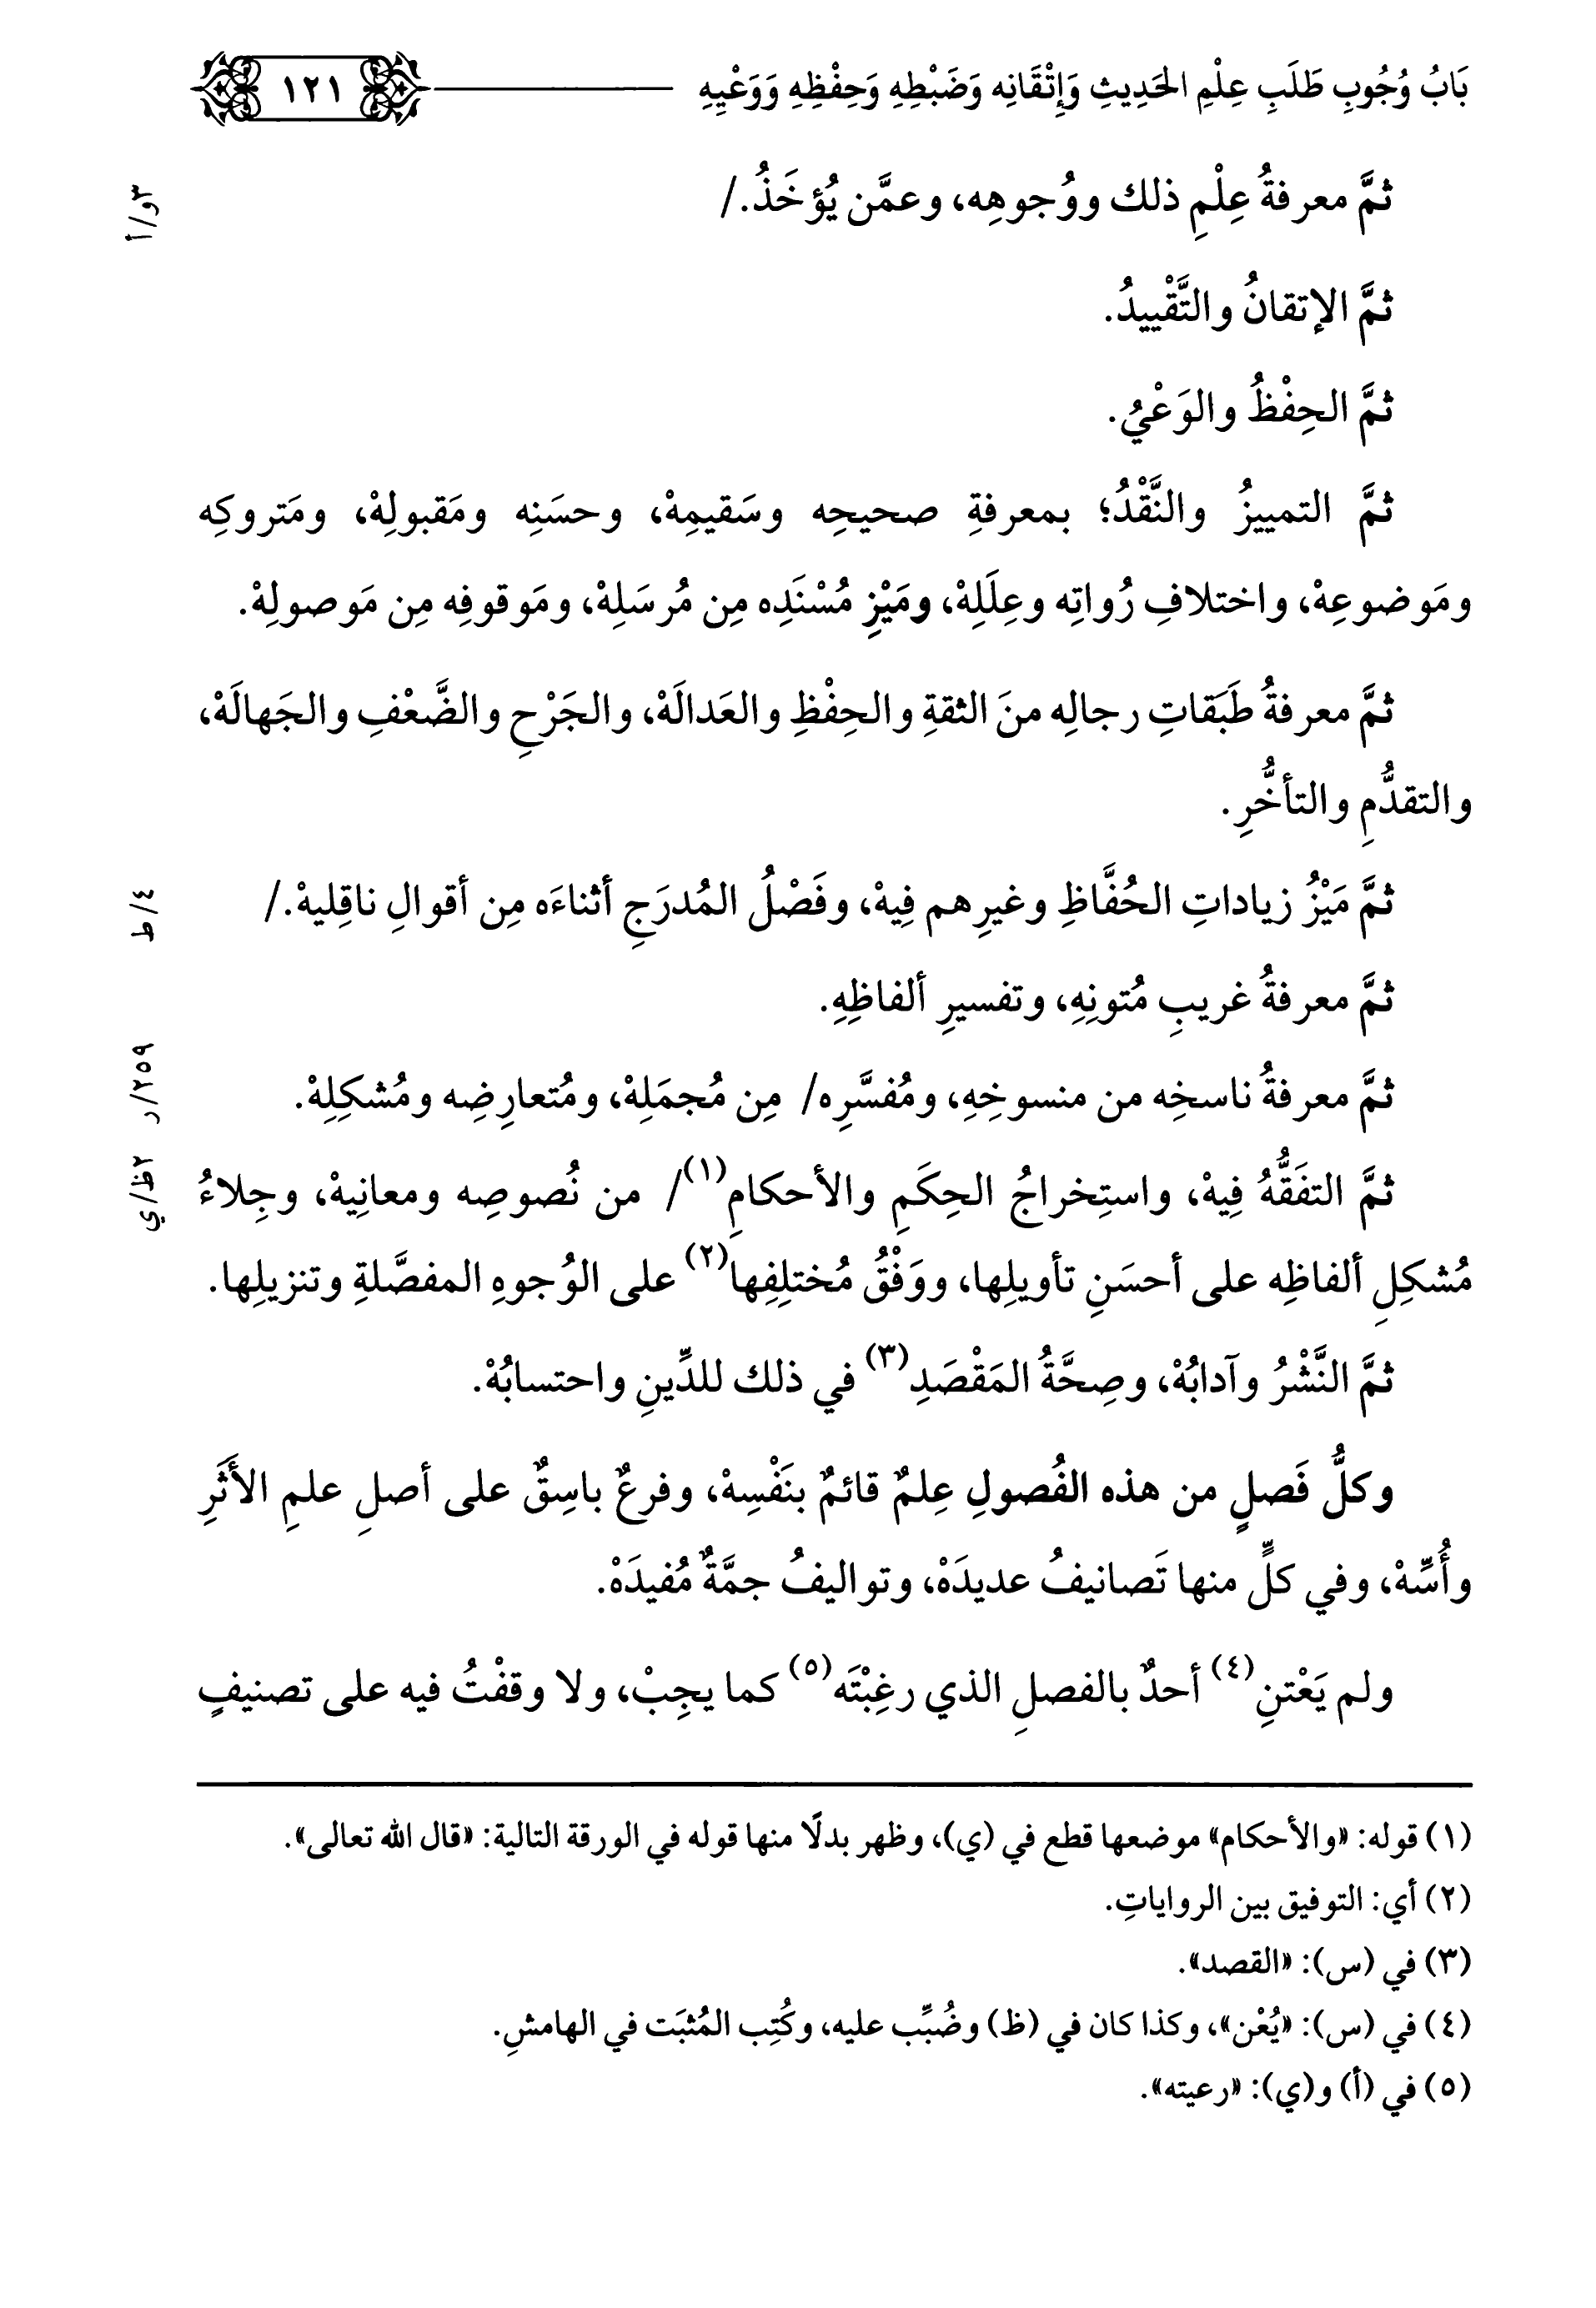 بَابُ وُجُوبِ طَلَبِ عِلْمِ الحَدِيثِ وَإِتْقَانِه وَضَبْطِهِ وَحِفْظِهِ وَوَعْيِهِ ١٢١
ثمَّ معرفةُ عِلْمِ ذلك ووُجوهِه، وعمَّن يُؤخَذُ./
٣و/أ
ثمَّ الإتقانُ والتَّقْييدُ.
ثمَّ الحِفْظُ والوَعْيُ.
ثمَّ التمييزُ والنَّقْدُ؛ بمعرفةِ صحيحِه وسَقيمِهْ، وحسَنِه ومَقبولِهْ، ومَتروكِه
ومَوضوعِهْ، واختلافِ رُواتِه وعِلَلِهْ، ومَيْزِ مُسْنَدِه مِن مُرسَلِهْ، ومَوقوفِه مِن مَوصولِهْ.
ثمَّ معرفةُ طَبَقاتِ رجالِه منَ الثقةِ والحِفْظِ والعَدالَهْ، والجَرْحِ والضَّعْفِ والجَهالَهْ،
والتقدُّمِ والتأخُّرِ.
ثمَّ مَيْزُ زياداتِ الحُفَّاظِ وغيرِهم فِيهْ، وفَصْلُ المُدرَجِ أثناءَه مِن أقوالِ ناقِليهْ./
٤/ط
ثمَّ معرفةُ غريبِ مُتونِهِ، وتفسيرِ ألفاظِهِ.
ثمَّ معرفةُ ناسخِه من منسوخِهِ، ومُفسَّرِه/ مِن مُجمَلِهْ، ومُتعارِضِه ومُشكِلِهْ.
٢٥٩/ر
ثمَّ التفَقُّهُ فِيهْ، واستِخراجُ الحِكَمِ والأحكامِ(١)/ من نُصوصِه ومعانِيهْ، وجِلاءُ
٢ظ/ي
مُشكِلِ ألفاظِه على أحسَنِ تأويلِها، ووَفْقُ مُختلِفِها(٢) على الوُجوهِ المفصَّلةِ وتنزيلِها.
ثمَّ النَّشْرُ وآدابُهْ، وصِحَّةُ المَقْصَدِ(٣) في ذلك للدِّينِ واحتسابُهْ.
وكلُّ فَصلٍ من هذه الفُصولِ عِلمٌ قائمٌ بنَفْسِهْ، وفرعٌ باسِقٌ على أصلِ علمِ الأَثَرِ
وأُسِّهْ، وفي كلٍّ منها تَصانيفُ عديدَهْ، وتواليفُ جمَّةٌ مُفيدَهْ.
ولم يَعْتنِ(٤) أحدٌ بالفصلِ الذي رغِبْتَه(٥) كما يجِبْ، ولا وقفْتُ فيه على تصنيفٍ
(١) قوله: «والأحكام» موضعها قطع في (ي)، وظهر بدلًا منها قوله في الورقة التالية: «قال الله تعالى».
(٢) أي: التوفيق بين الرواياتِ.
(٣) في (س): «القصد».
(٤) في (س): «يُعْن»، وكذا كان في (ظ) وضُبِّب عليه، وكُتِب المُثبَت في الهامشِ.
(٥) في (أ) و(ي): «رعيته».